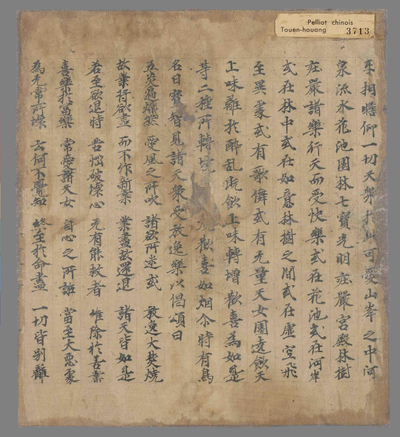 Pelliot chinois
Touen-houang 3713
至相瞻仰一切天眾於此可愛山峯之中河
泉流水花池園林七寶光明莊嚴宮殿林樹
莊嚴諸樂行天而受快樂或在花池或在河岸
或在林中或在如意林樹之間或在虛空飛
至異處或有歌儛或有无量天女圍遶飲天
上味離於醉亂既飲上味轉增歡喜為如是
等二種所轉境 歡喜如烟尒時有鳥
名曰實智見諸天眾受放逸樂以偈頌曰
愛風之所吹 諸欲所迷或 放逸大焚燒
故業將欲盡 而不作新業 業盡故還退 諸天皆如是
若至欲退時 苦惱破壞心 无有能救者 唯除於善業
喜樂 常為諸天女 自心之所誑 當至大惡處
為死常所 云何不覺知 終至於命盡 一切皆別離